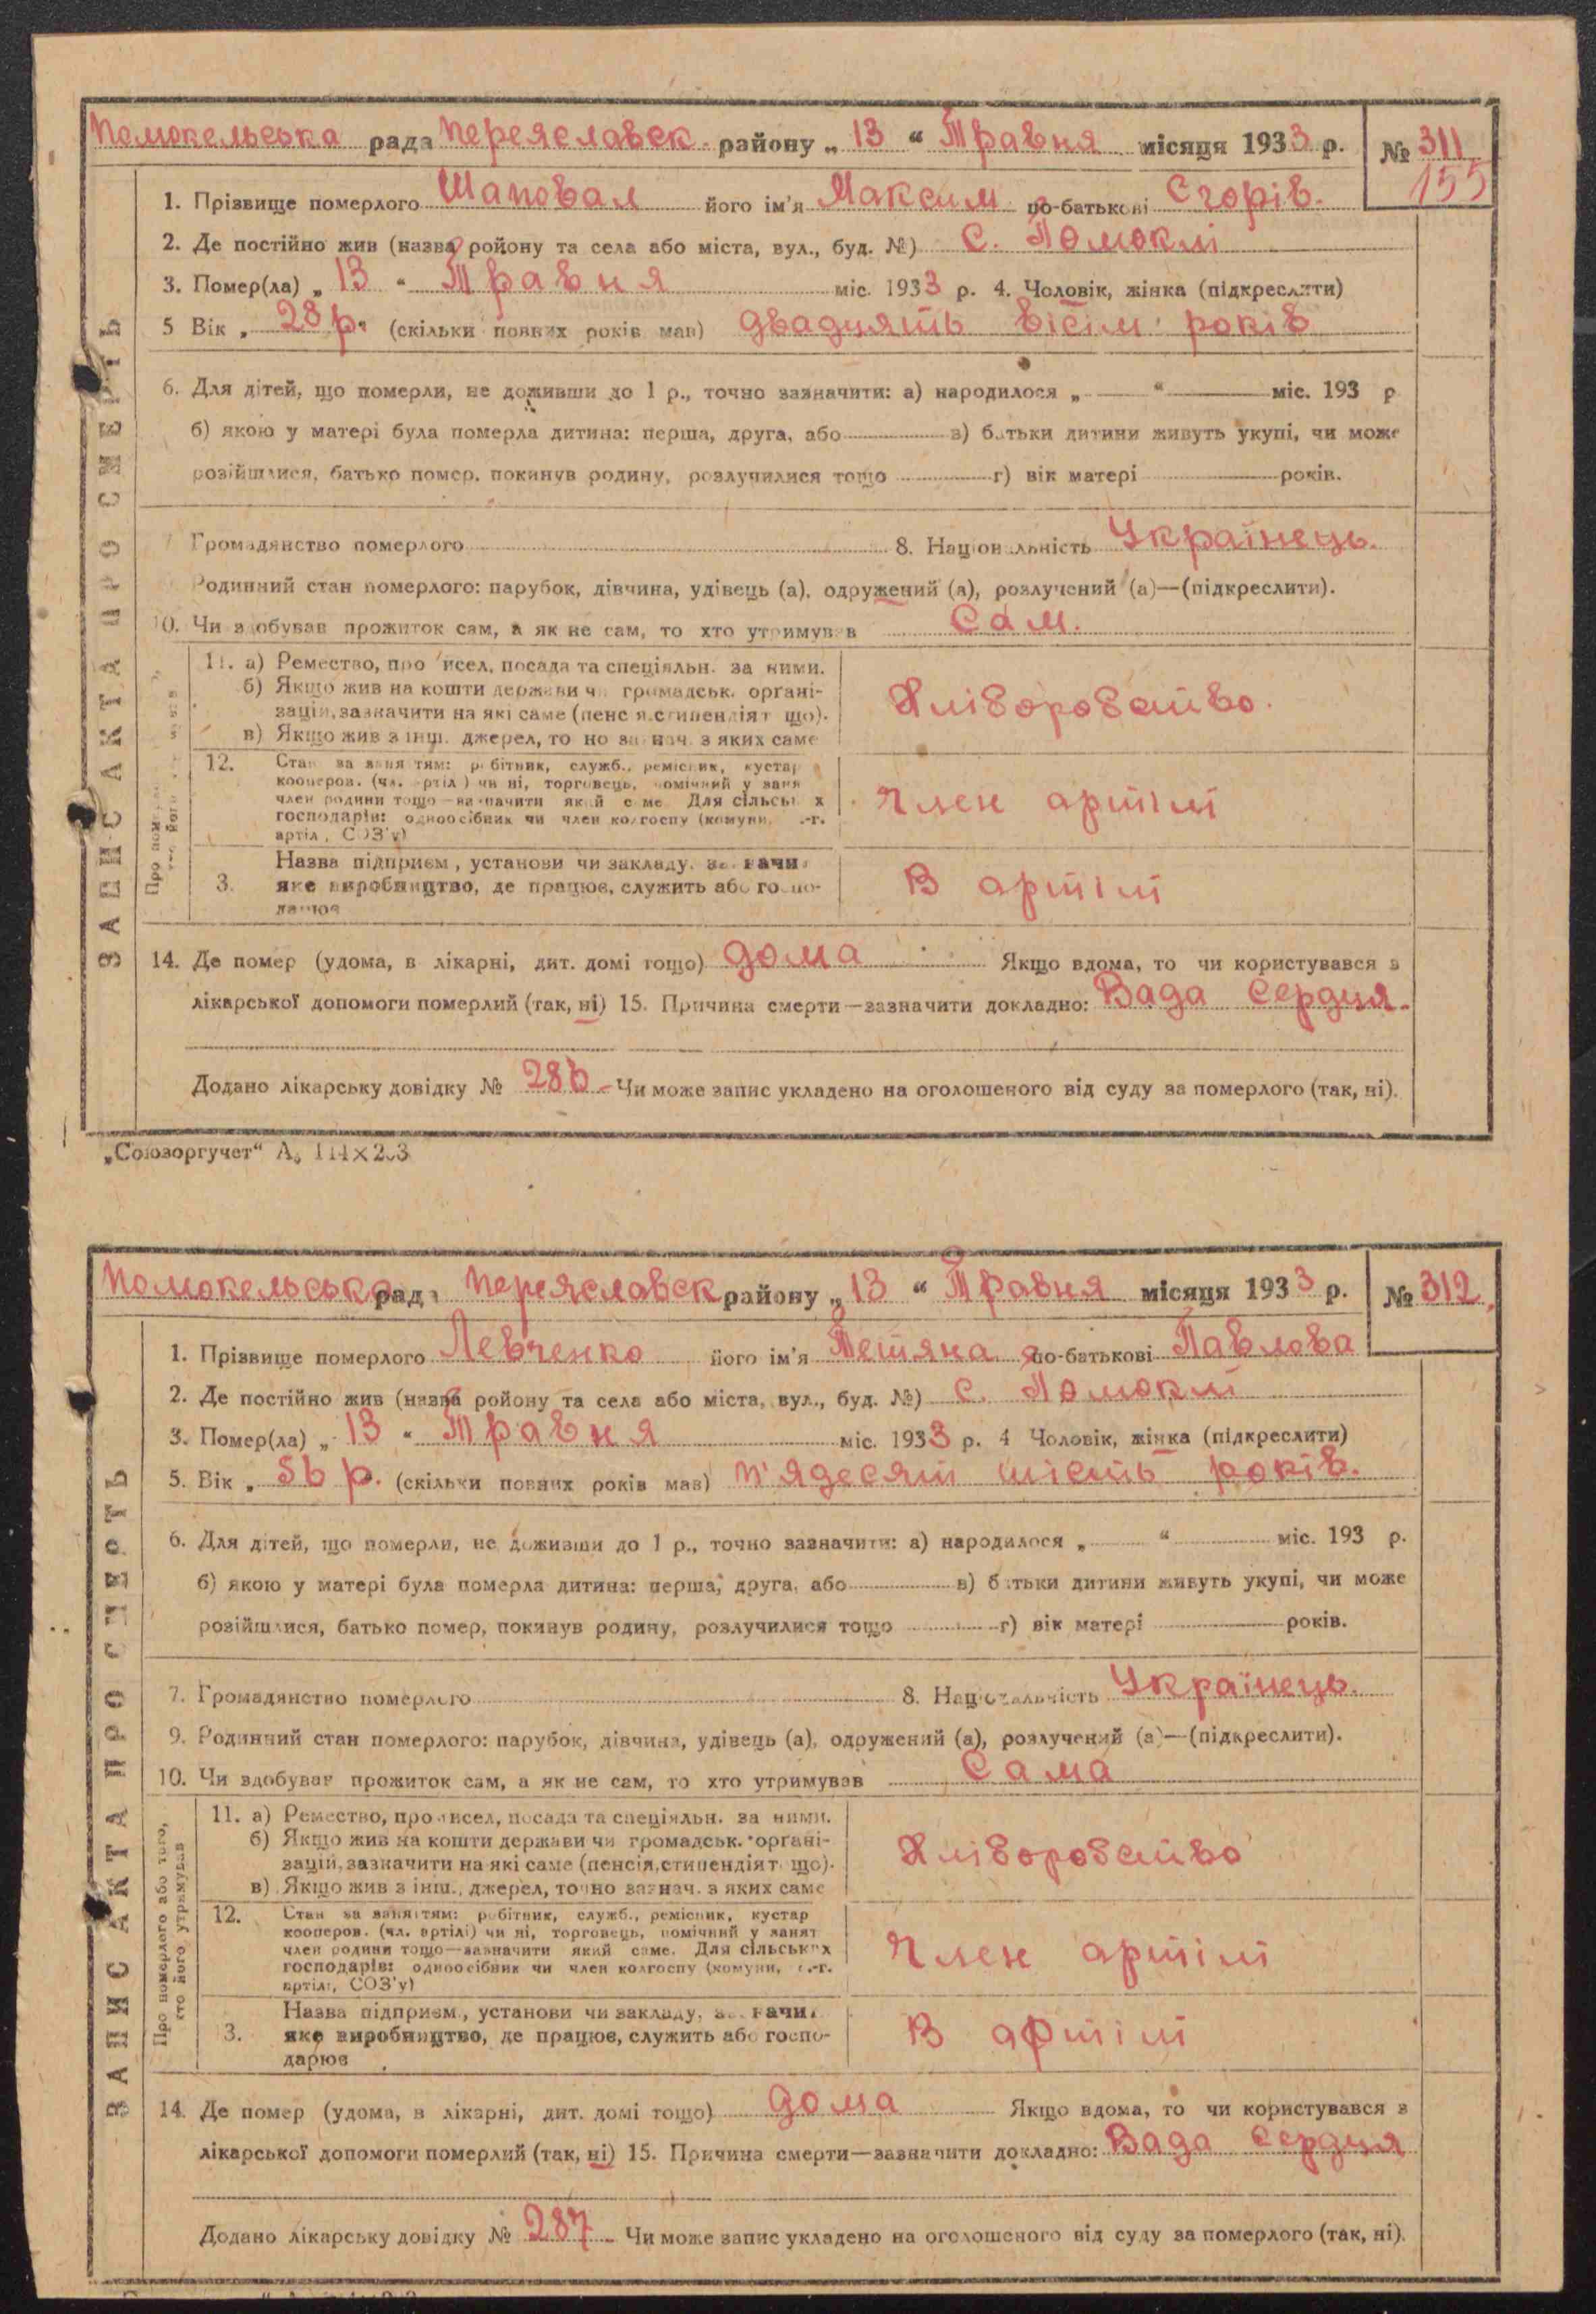 Помокельська рада Переяславск. району „ 13 “ Травня місяця 1933 р. № 311
155
1. Прізвище померлого Шаповал його ім’я Максим по-батькові Єгорів.
2. Де постійно жив (назва ройону та села або міста, вул., буд. №) С. Помоклі
3. Помер(ла) „ 13 “ Травня міс. 1933 р. 4. Чоловік, жінка (підкреслити)
5 Вік „ 28 р. (скільки повних років мав) двадцять вісім років
6. Для дітей, що померли, не доживши до 1 р., точно зазначити: а) народилося „ “ міс. 193 р
б) якою у матері була померла дитина: перша, друга, або в) батьки дитини живуть укупі, чи може
розійшлися, батько помер, покинув родину, розлучилися тощо г) вік матері років.
Громадянство померлого 8. Національність Українець.
Родинний стан померлого: парубок, дівчина, удівець (а), одружений (а), розлучений (а)—(підкреслити).
10. Чи здобував прожиток сам, а як не сам, то хто утримував Сам.
11. а) Ремество, промисел, посада та спеціяльн. за ними.
б) Якщо жив на кошти держави чи громадськ. органі-
зацій, зазначити на які саме (пенсія, стипендіят що).
в) Якщо жив з інш. джерел, точно зазнач. з яких саме
Хліборобство.
12. Стан за заняттям: робітник, служб., ремісник, кустар
кооперов. (чл. артілі) чи ні, торговець, помічний у занят
член родини тощо—зазначити який саме. Для сільських
господарів: одноосібник чи член колгоспу (комуни, с.-г.
артіл., СОЗ’у)
Член артілі
3. Назва підприєм., установи чи закладу, зазначи
яке виробництво, де працює, служить або госпо-
дарює
В артілі
14. Де помер (удома, в лікарні, дит. домі тощо) дома Якщо вдома, то чи користувався з
лікарської допомоги померлий (так, ні) 15. Причина смерти—зазначити докладно: Вада серця.
Додано лікарську довідку № 286 Чи може запис укладено на оголошеного від суду за померлого (так, ні).
ЗАПИС АКТА ПРО СМЕРТЬ
„Союзоргучет“ А₅
Помокельська рада Переяславск району „ 13 “ Травня місяця 1933 р. № 312
1. Прізвище померлого Левченко його ім’я Тетяна по-батькові Павлова
2. Де постійно жив (назва ройону та села або міста, вул., буд. №) С. Помоклі
3. Помер(ла) „ 13 “ Травня міс. 1933 р. 4 Чоловік, жінка (підкреслити)
5. Вік „ 56 р. (скільки повних років мав) п'ядесят шість років.
6. Для дітей, що померли, не доживши до 1 р., точно зазначити: а) народилося „ “ міс. 193 р.
б) якою у матері була померла дитина: перша, друга, або в) батьки дитини живуть укупі, чи може
розійшлися, батько помер, покинув родину, розлучилися тощо г) вік матері років.
7. Громадянство померлого 8. Національність Українець.
9. Родинний стан померлого: парубок, дівчина, удівець (а), одружений (а), розлучений (а)—(підкреслити).
10. Чи здобував прожиток сам, а як не сам, то хто утримував Сама
11. а) Ремество, промисел, посада та спеціяльн. за ними.
б) Якщо жив на кошти держави чи громадськ. органі-
зацій, зазначити на які саме (пенсія, стипендіят що).
в) Якщо жив з інш., джерел, точно зазнач. з яких саме
Хліборобство
12. Стан за заняттям: робітник, служб., ремісник, кустар
кооперов. (чл. артілі) чи ні, торговець, помічний у занят
член родини тощо—зазначити який саме. Для сільських
господарів: одноосібник чи член колгоспу (комуни, с.-г.
артілі, СОЗ’у)
Член артілі
3. Назва підприєм., установи чи закладу, зазначи
яке виробництво, де працює, служить або госпо-
дарює
В артілі
Про померлого або того,
хто його утримував
14. Де помер (удома, в лікарні, дит. домі тощо) дома Якщо вдома, то чи користувався з
лікарської допомоги померлий (так, ні) 15. Причина смерти—зазначити докладно: Вада серця
Додано лікарську довідку № 287 Чи може запис укладено на оголошеного від суду за померлого (так, ні).
ЗАПИС АКТА ПРО СМЕРТЬ